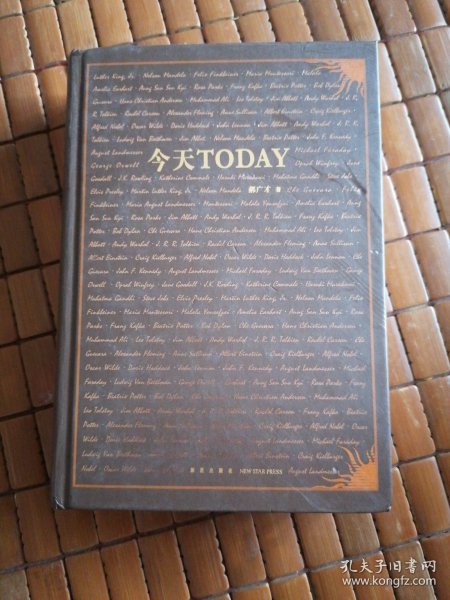 Luther King, Jr. · Nelson Mandela · Felix Finkbeiner · Maria Montessori · Malala
Amelia Earhart · Aung San Suu Kyi · Rosa Parks · Franz Kafka · Beatrix Potter · Bob Dylan
Guevara · Hans Christian Andersen · Muhammad Ali · Leo Tolstoy · Jim Abbott · Andy Warhol · J. R.
R. Tolkien · Rachel Carson · Alexander Fleming · Anne Sullivan · Albert Einstein · Craig Kielburger
Alfred Nobel · Oscar Wilde · Doris Haddock · John Lennon · Jim Abbott · Andy Warhol · J. R. R.
Tolkien · Ludwig Van Beethoven · Jim Abbot · Nelson Mandela · Beatrix Potter · John F. Kennedy
August Landmesser
Michael Faraday
George Orwell
今天TODAY
Oprah Winfrey · Jane
Goodall · J.K. Rowling · Katherine Commale · Haruki Murakami · Mahatma Gandhi · Steve Jobs
Elvis Presley · Martin Luther King, Jr. · Nelson Mandela
郝广才 著
Che Guevara · Felix
Finkbeiner · Maria August Landmesser · Malala Yousafzai · Amelia Earhart · Aung
San Suu Kyi · Rosa Parks · Jim Abbott · Andy Warhol · J. R. R. Tolkien · Franz Kafka · Beatrix
Potter · Bob Dylan · Che Guevara · Hans Christian Andersen · Muhammad Ali · Leo Tolstoy · Jim
Abbott · Andy Warhol · J. R. R. Tolkien · Rachel Carson · Alexander Fleming · Anne Sullivan
Albert Einstein · Craig Kielburger · Alfred Nobel · Oscar Wilde · Doris Haddock · John Lennon · Che
Guevara · John F. Kennedy · August Landmesser · Michael Faraday · Ludwig Van Beethoven · George
Orwell · Oprah Winfrey · Jane Goodall · J.K. Rowling · Katherine Commale · Haruki Murakami
Mahatma Gandhi · Steve Jobs · Elvis Presley · Martin Luther King, Jr. · Nelson Mandela · Felix
Finkbeiner · Maria Montessori · Malala Yousafzai · Amelia Earhart · Aung San Suu Kyi · Rosa
Parks · Franz Kafka · Beatrix Potter · Bob Dylan · Che Guevara · Hans Christian Andersen
Muhammad Ali · Leo Tolstoy · Jim Abbott · Andy Warhol · J. R. R. Tolkien · Rachel Carson · Che
Guevara · Alexander Fleming · Anne Sullivan · Albert Einstein · Craig Kielburger · Alfred Nobel
Oscar Wilde · Doris Haddock · John Lennon · John F. Kennedy · August Landmesser · Michael
Faraday · Ludwig Van Beethoven · George Orwell · Aung San Suu Kyi · Rosa Parks · Franz
Kafka · Beatrix Potter · Bob Dylan · Che Guevara · Hans Christian Andersen · Muhammad Ali
Leo Tolstoy · Jim Abbott · Andy Warhol · J. R. R. Tolkien · Rachel Carson · Franz Kafka · Beatrix
Potter · Alexander Fleming · Anne Sullivan · Albert Einstein · Craig Kielburger · Alfred Nobel · Oscar
Wilde · Doris Haddock · John Lennon · August Landmesser · Michael Faraday
Ludwig Van Beethoven · Albert Einstein · Craig Kielburger
Nobel · Oscar Wilde
新星出版社 NEW STAR PRESS
August Landmesser
孔夫子旧书网
www.kongfz.com